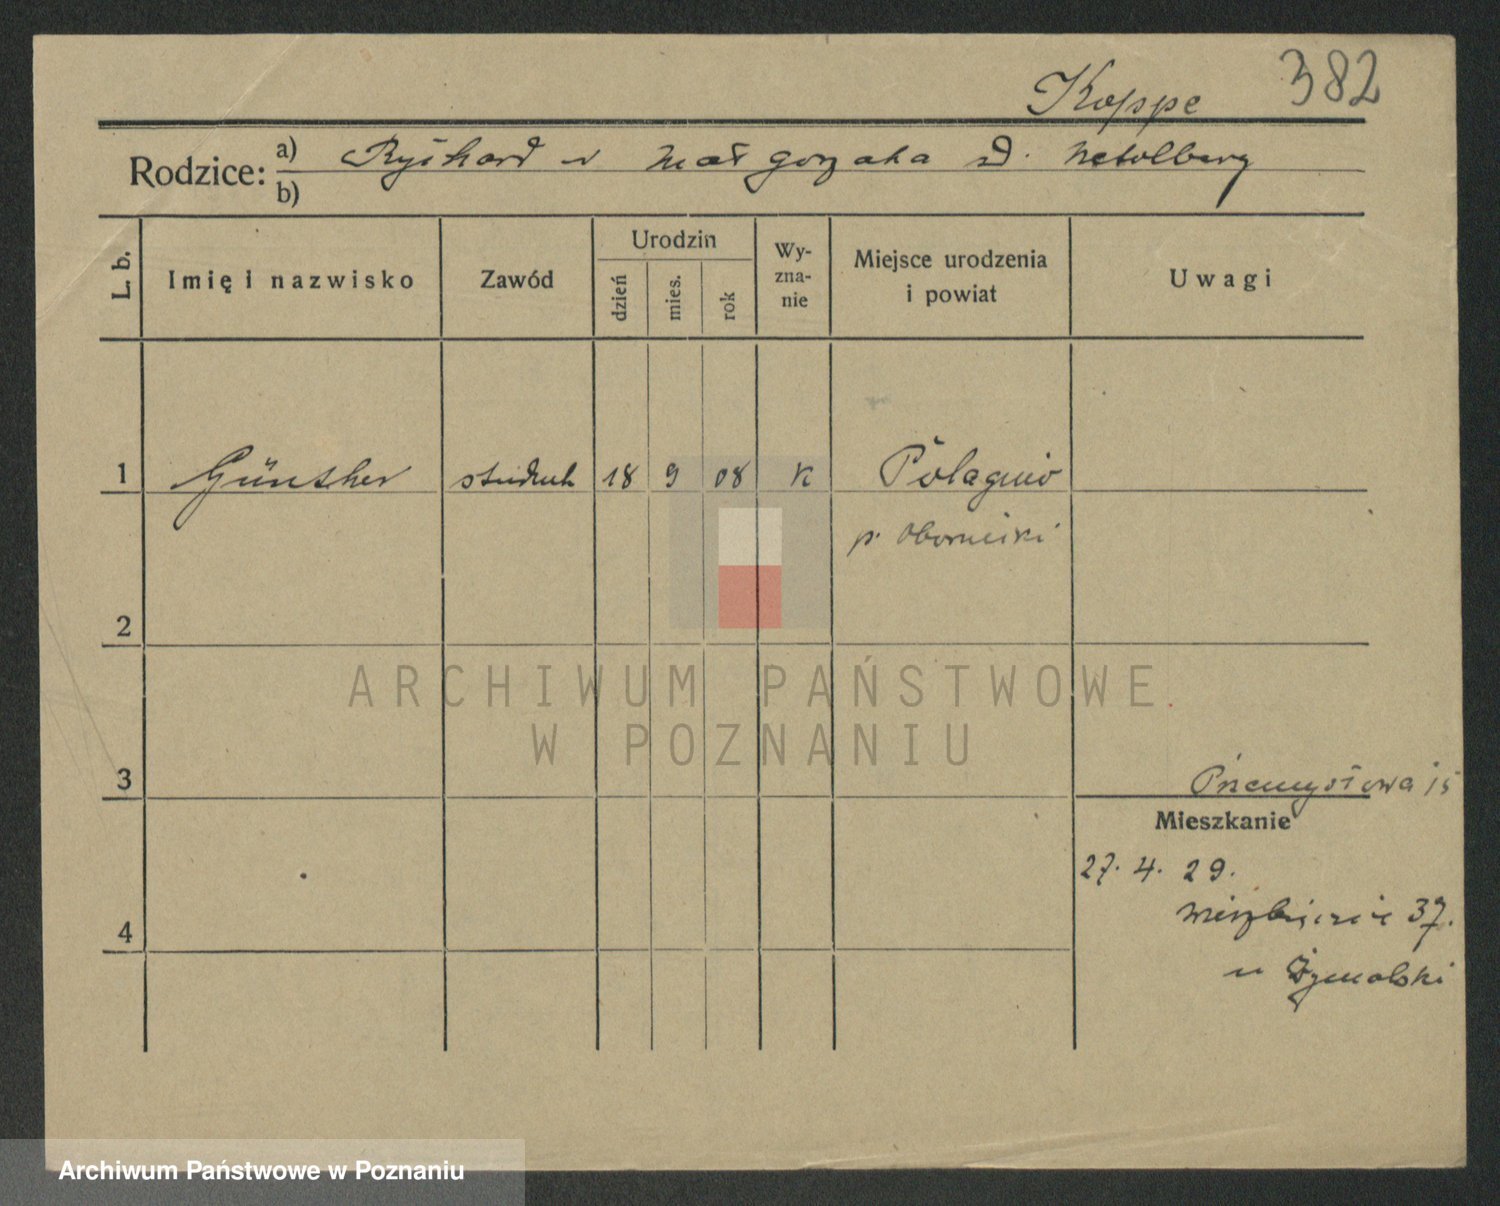 Koppe 382
Rodzice: a) Ryszard i Małgorzata z d.
b)
L. b. Imię i nazwisko Zawód Urodzin dzień mies. rok Wyznanie Miejsce urodzenia i powiat Uwagi
1 Günther student 18 9 08 K Połagiewo
p. Oborniki
2
ARCHIWUM PAŃSTWOWE
W POZNANIU
3 Przemysłowa 15
Mieszkanie
27. 4. 29.
Wierzbięcice 37.
4
u Żymalski
Archiwum Państwowe w Poznaniu